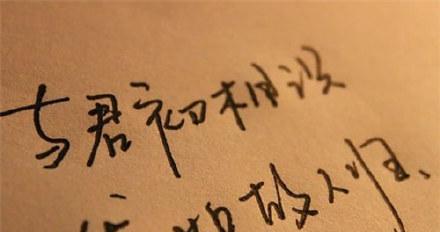 与君初相识
故人归、